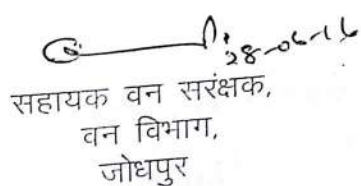 28-06-16
सहायक वन सरंक्षक,
वन विभाग,
जोधपुर